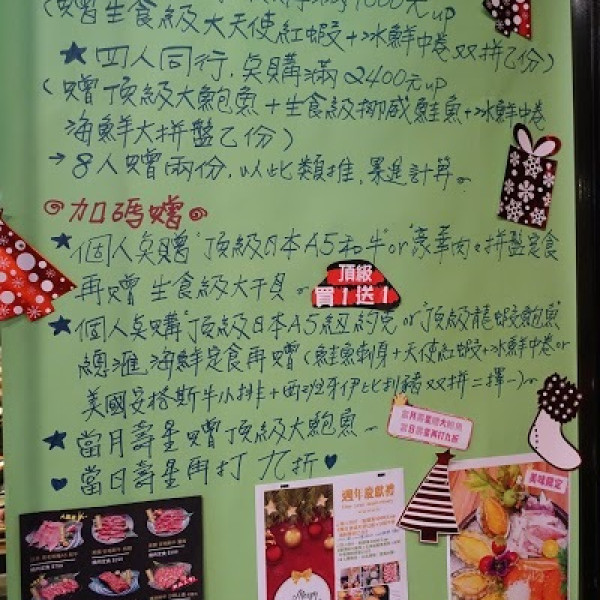 1000元up
(贈生食級大天使紅蝦+冰鮮中卷双拼乙份)
★四人同行,員購滿2400元up
(贈頂級大鮑魚+生食級挪威鮭魚+冰鮮中卷
海鮮大拼盤乙份)
→8人贈兩份,以此類推,累進計算。
加碼贈
★個人員購"頂級日本A5和牛"or"豪華肉e拼盤定食
再贈生食級大干貝。
頂級
買1送1
★個人員購"頂級日本A5紐約克"or"頂級龍蝦鮑魚"
總滙海鮮定食再贈(鮭魚刺身+天使紅蝦+冰鮮中卷or
美國安格斯牛小排+西班牙伊比利豬双拼二擇一)。
★當月壽星贈頂級大鮑魚。
♥當日壽星再打九折♥
當月壽星贈大鮑魚
當日壽星再打九折
週年歡慶禮
Merry
美味限定